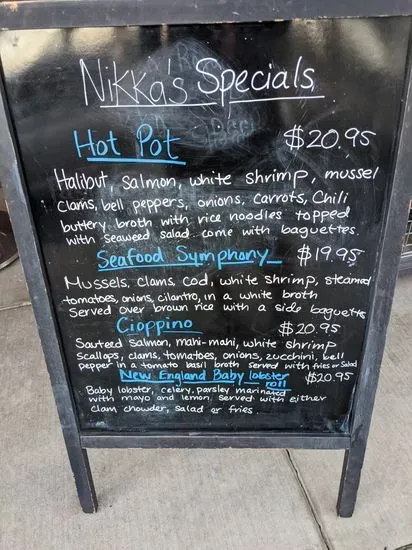 Nikka's Specials
Hot Pot $20.95
Halibut, Salmon, white shrimp, mussel
clams, bell peppers, onions, carrots, Chili
buttery broth with rice noodles topped
with seaweed salad come with baguettes.
Seafood Symphony $19.95
Mussels, clams, cod, white shrimp, steamed
tomatoes, onions, cilantro, in a white broth
Served over brown rice with a side baguettes
Cioppino $20.95
Sauteed Salmon, mahi-mahi, white shrimp
Scallops, clams, tomatoes, onions, zucchini, bell
pepper in a tomato basil broth served with fries or Salad
New England Baby lobster $20.95
roll
Baby lobster, celery, parsley marinated
with mayo and lemon served with either
clam chowder, salad or fries.